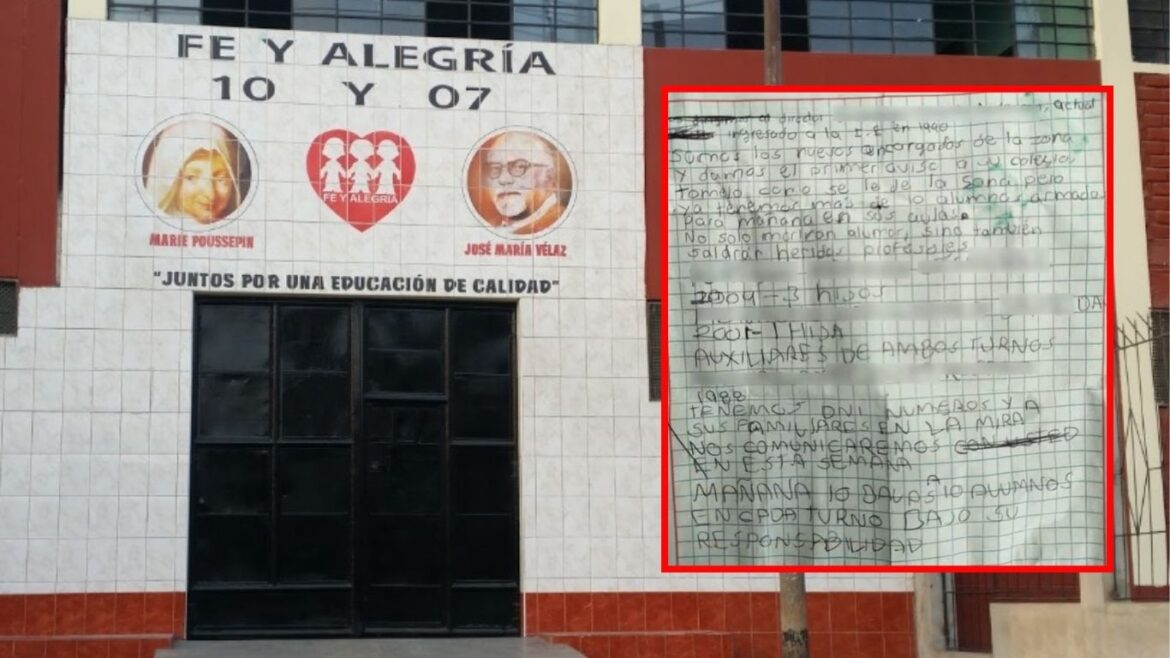 FE Y ALEGRÍA
10 Y 07
FE Y ALEGRIA
MARIE POUSSEPIN
JOSÉ MARÍA VÉLAZ
"JUNTOS POR UNA EDUCACIÓN DE CALIDAD"
al director
, actual
ingresado a la I.E en 1990
Sumos los nuevos encargados de la zona
y damos el primer aviso a su colegio
tomelo como se le de la gana pero
ya tenemos mas de 10 alumnos armados
para mañana en sus aulas.
No solo moriran alumnos, sino tambien
saldran heridos profesores
2004 - 3 hijos
DA
2001 - 1 HIJA
AUXILIARES DE AMBOS TURNOS
1988
TENEMOS DNI NUMEROS Y A
SUS FAMILIARES EN LA MIRA
NOS COMUNICAREMOS CON USTED
EN ESTA SEMANA
MAÑANA 10 BALAS A 10 ALUMNOS
EN CADA TURNO BAJO SU
RESPONSABILIDAD